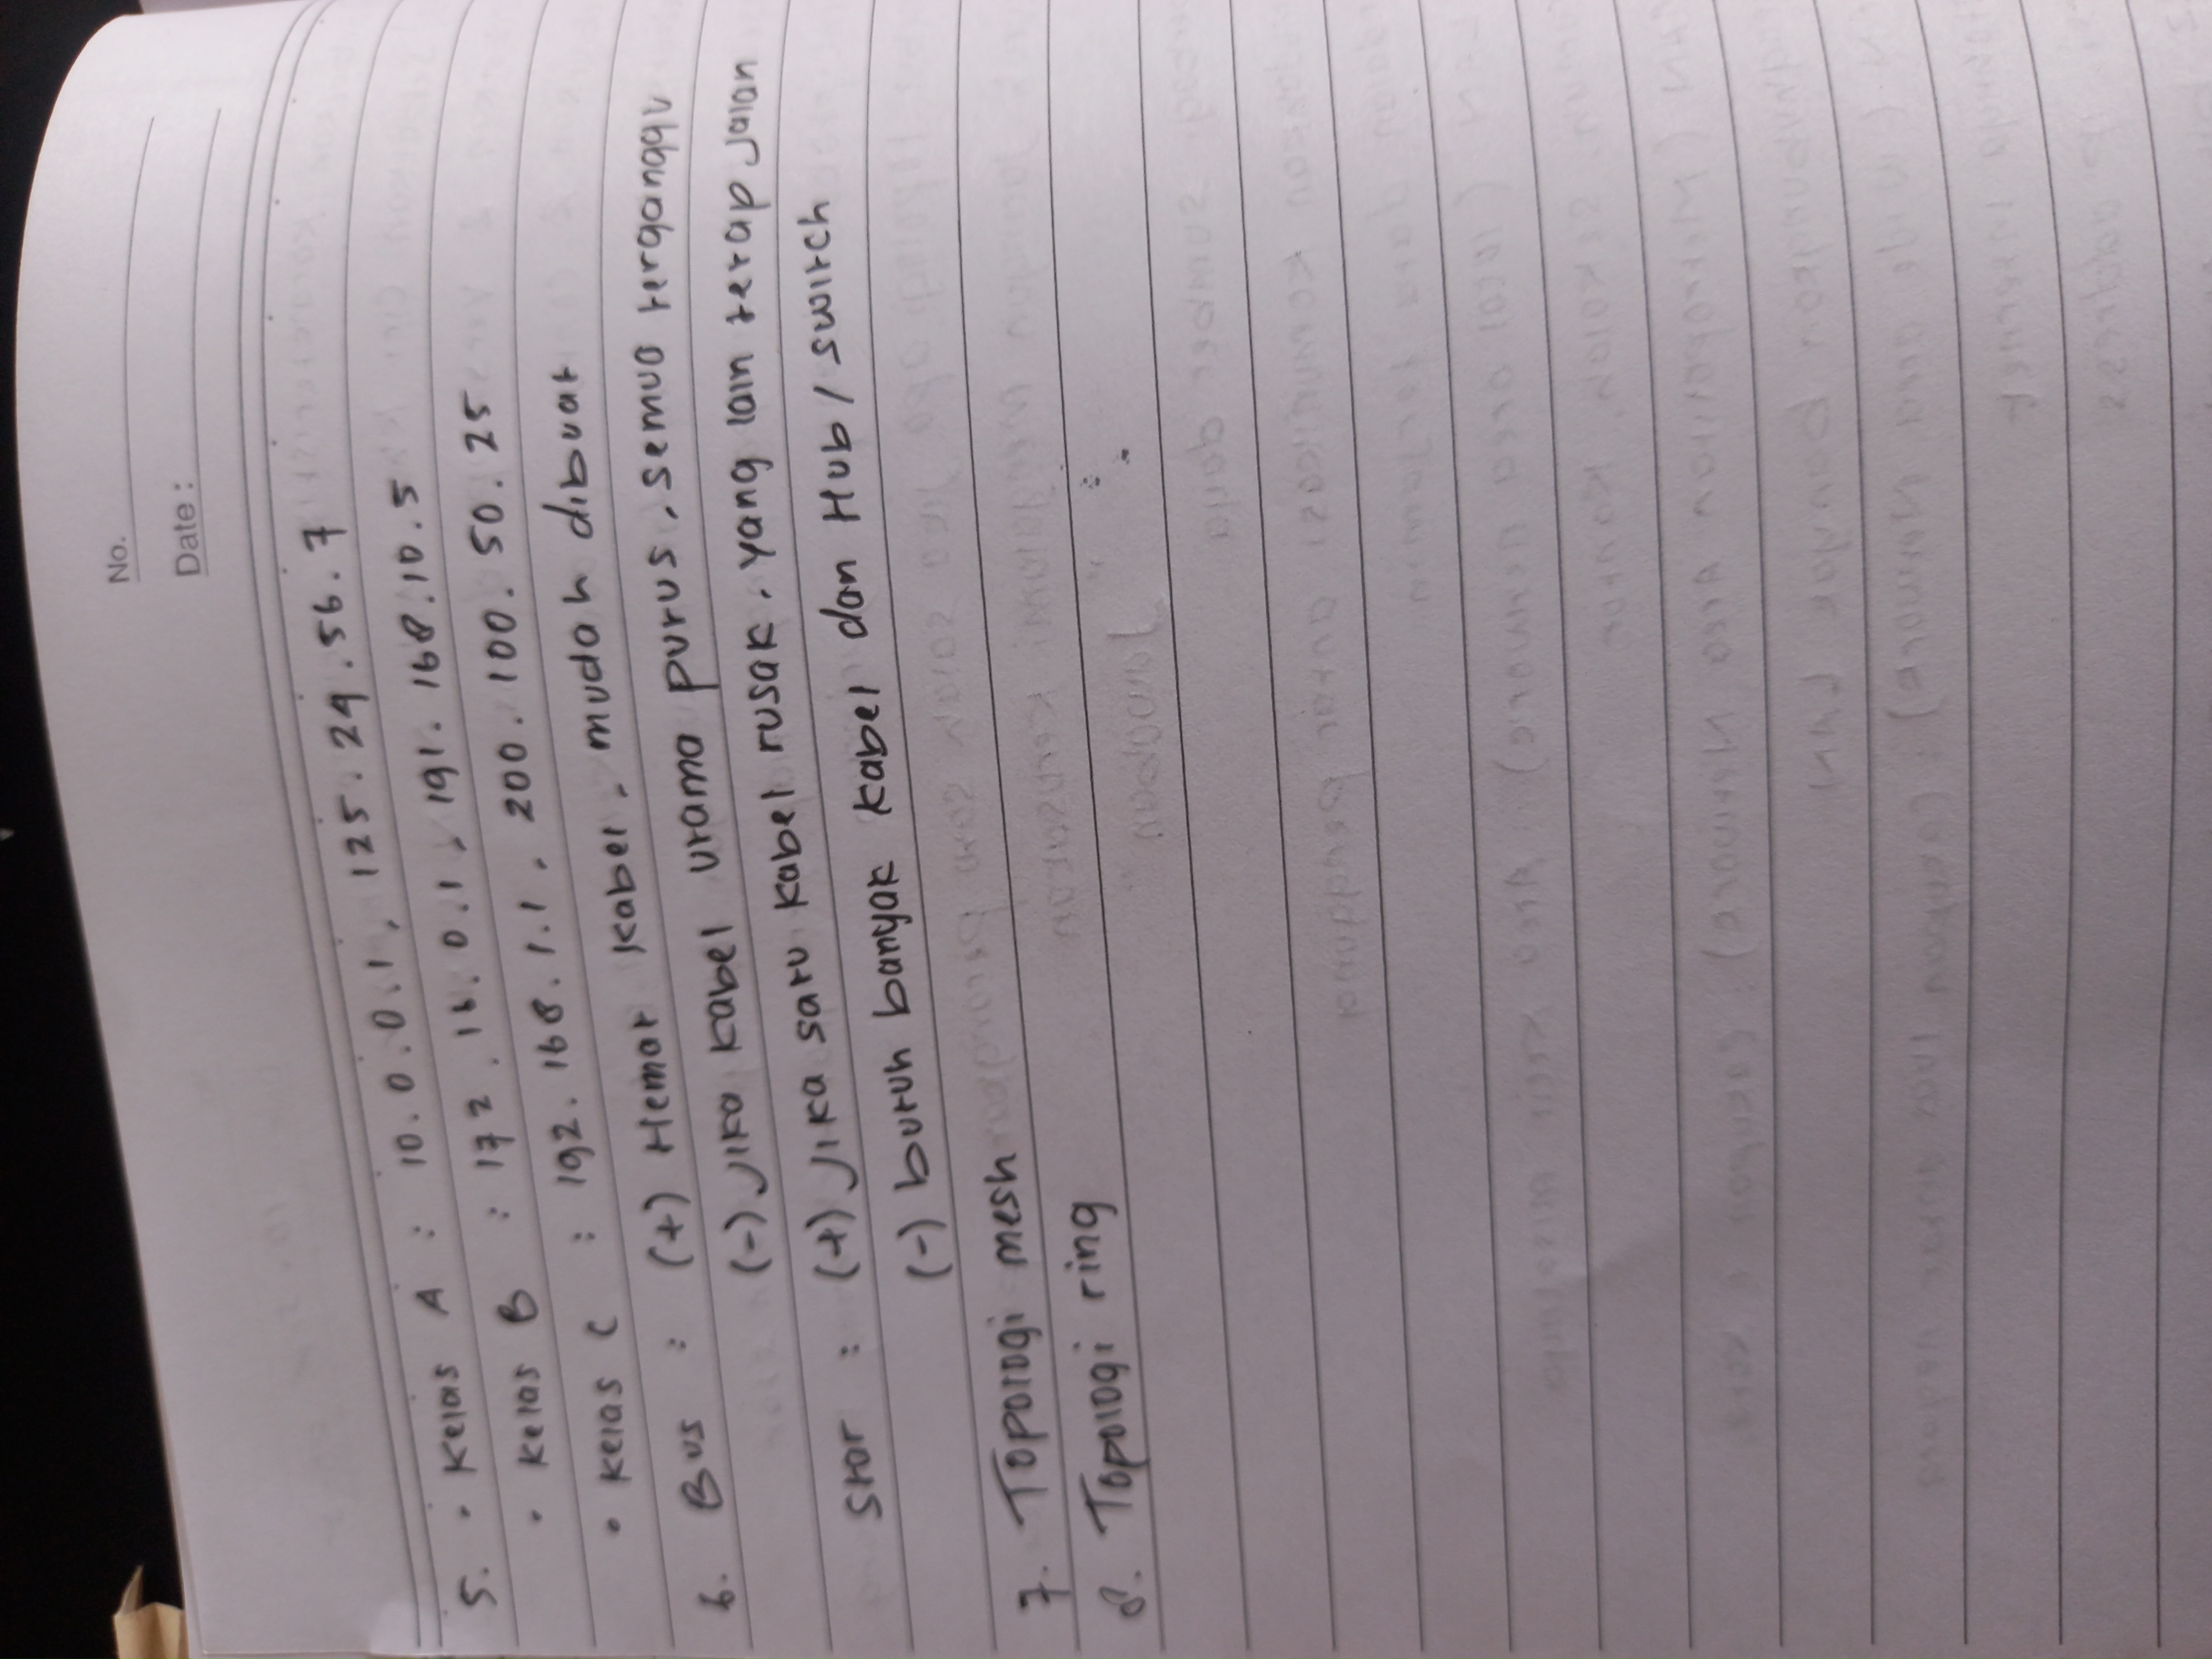 No.
Date :
5. • Kelas A : 10.0.0.1, 125.24.56.7
• Kelas B : 172.16.0.1, 191.168.10.5
• Kelas C : 192.168.1.1, 200.100.50.25
6. Bus : (+) Hemat kabel, mudah dibuat
(-) Jika kabel utama putus, semua terganggu
Star : (+) Jika satu kabel rusak, yang lain tetap jalan
(-) butuh banyak kabel dan Hub / switch
7. Topologi mesh
8. Topologi ring